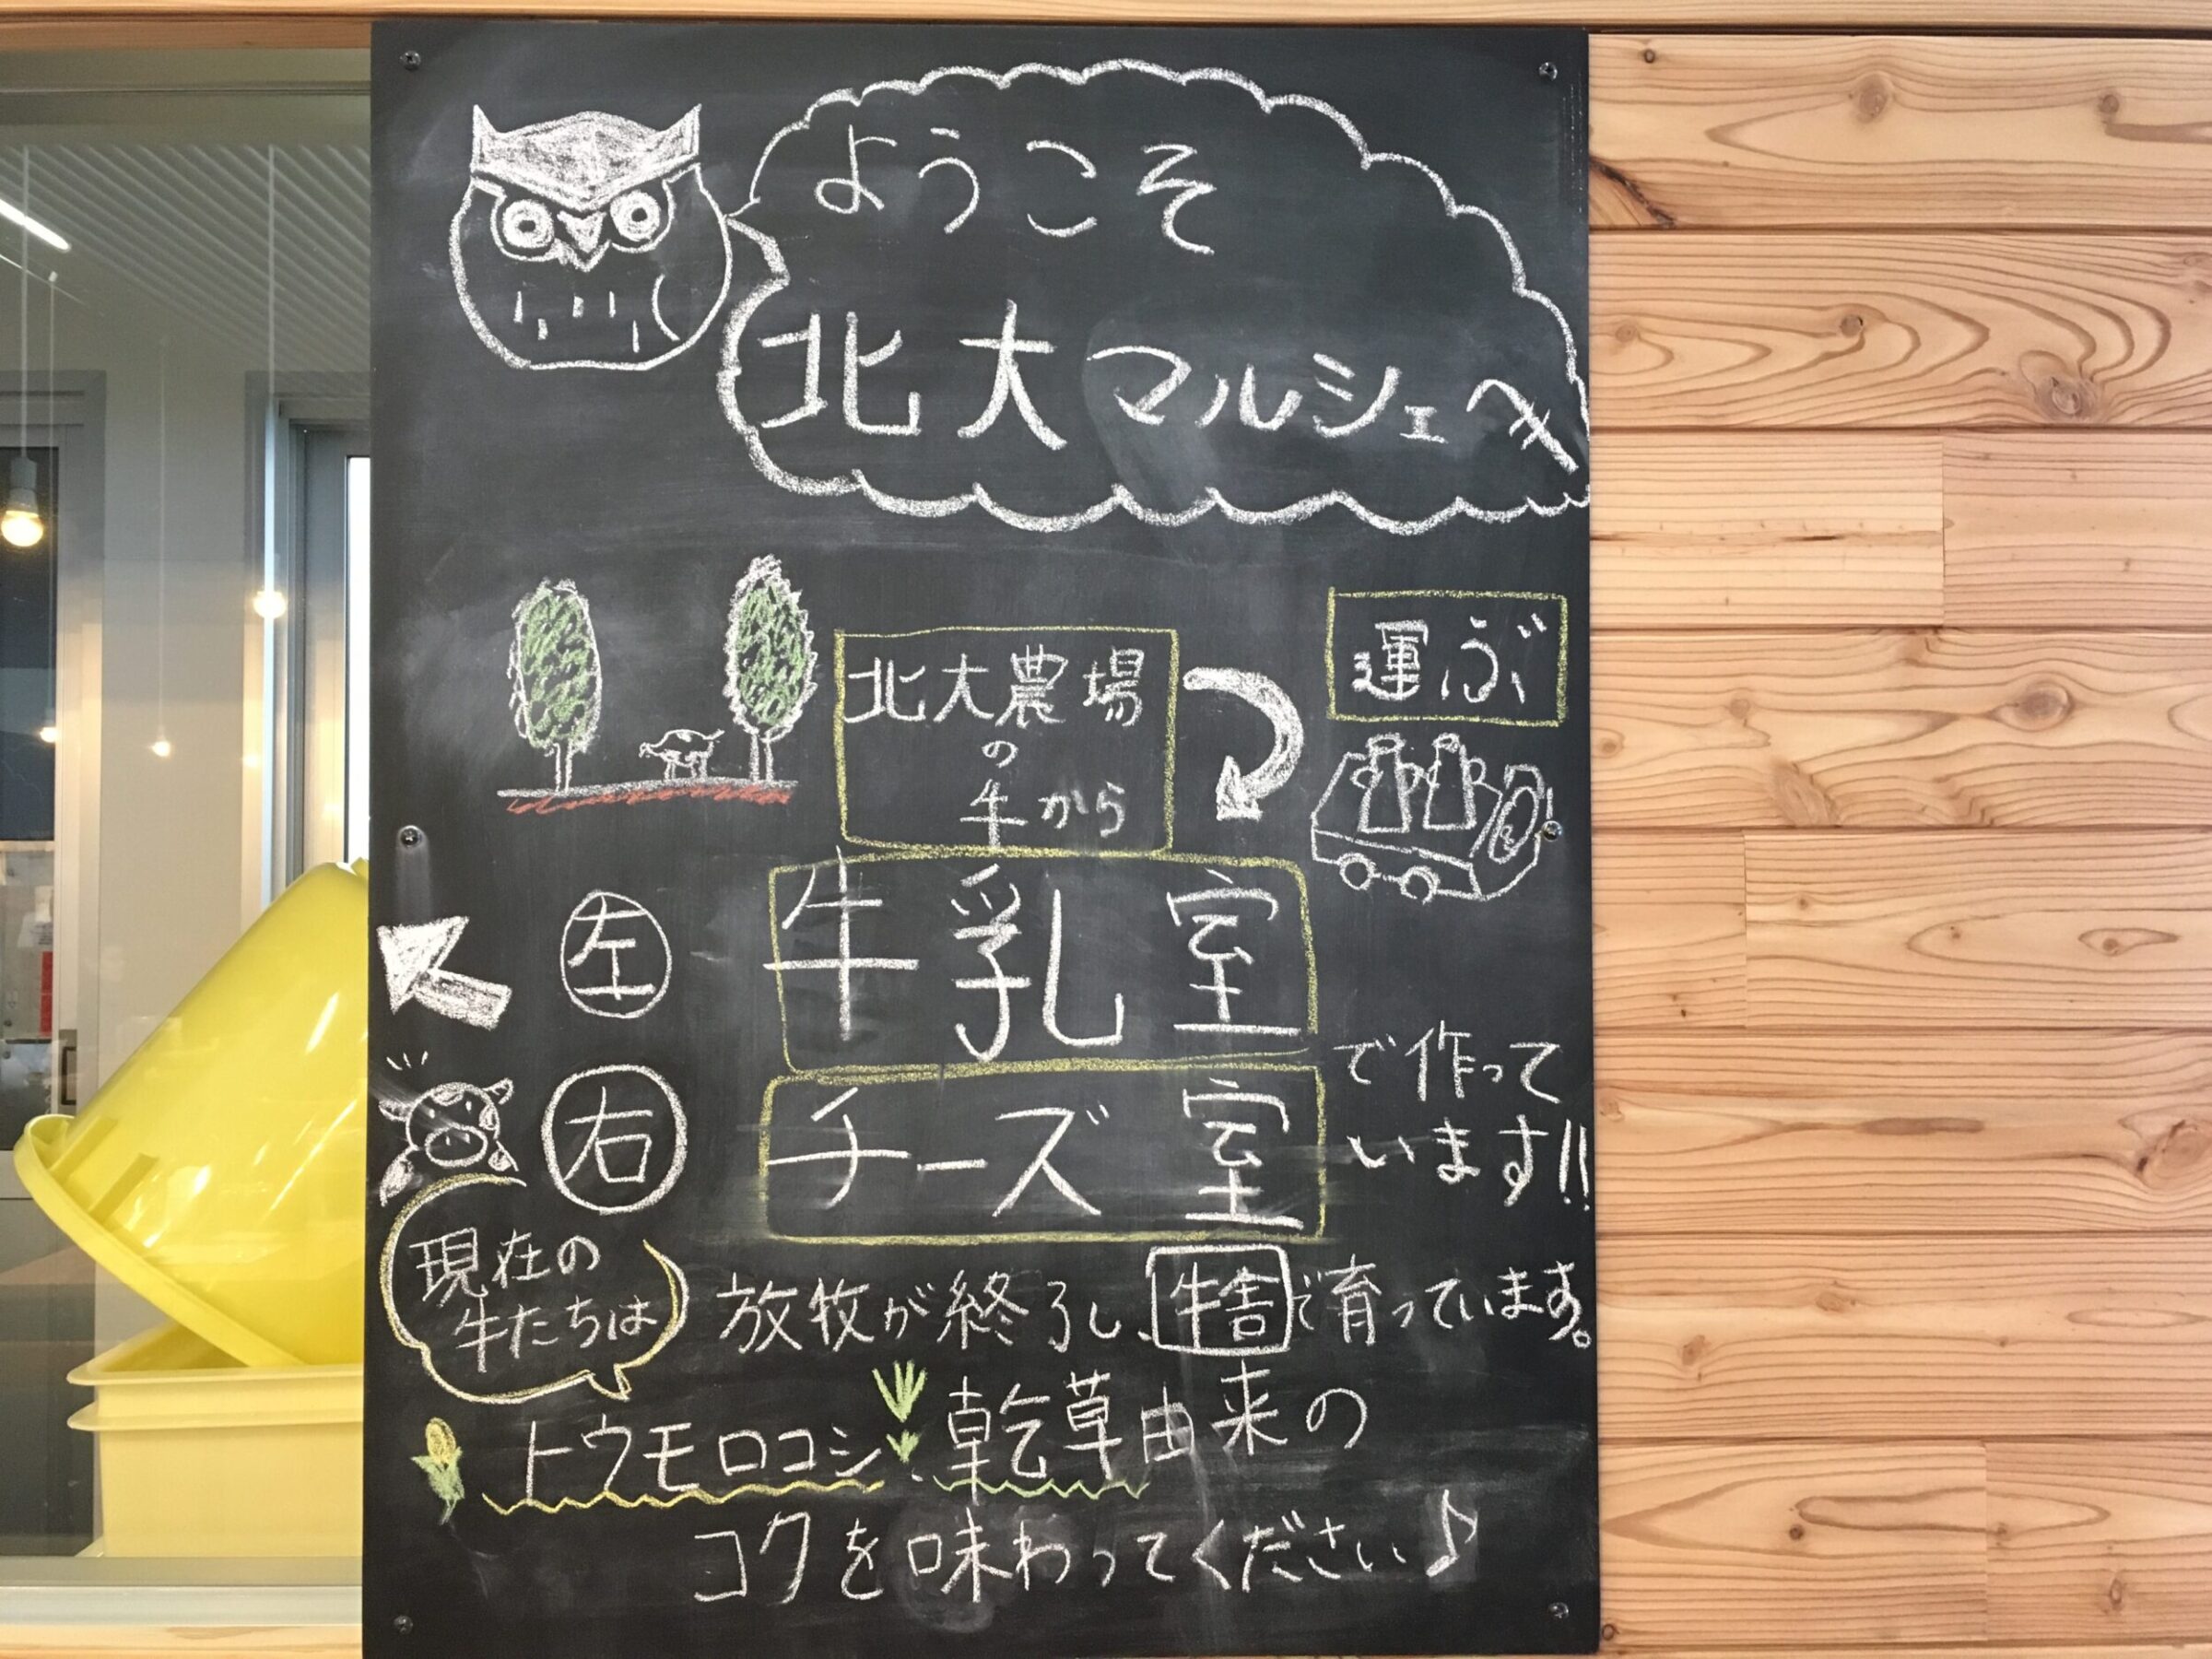 ようこそ
北大マルシェへ
北大農場
の
牛から
運ぶ
左
牛乳室
右
チーズ室
で作って
います!!
現在の
牛たちは
放牧が終了し、牛舎で育っています。
トウモロコシ・乾草由来の
コクを味わってください♪